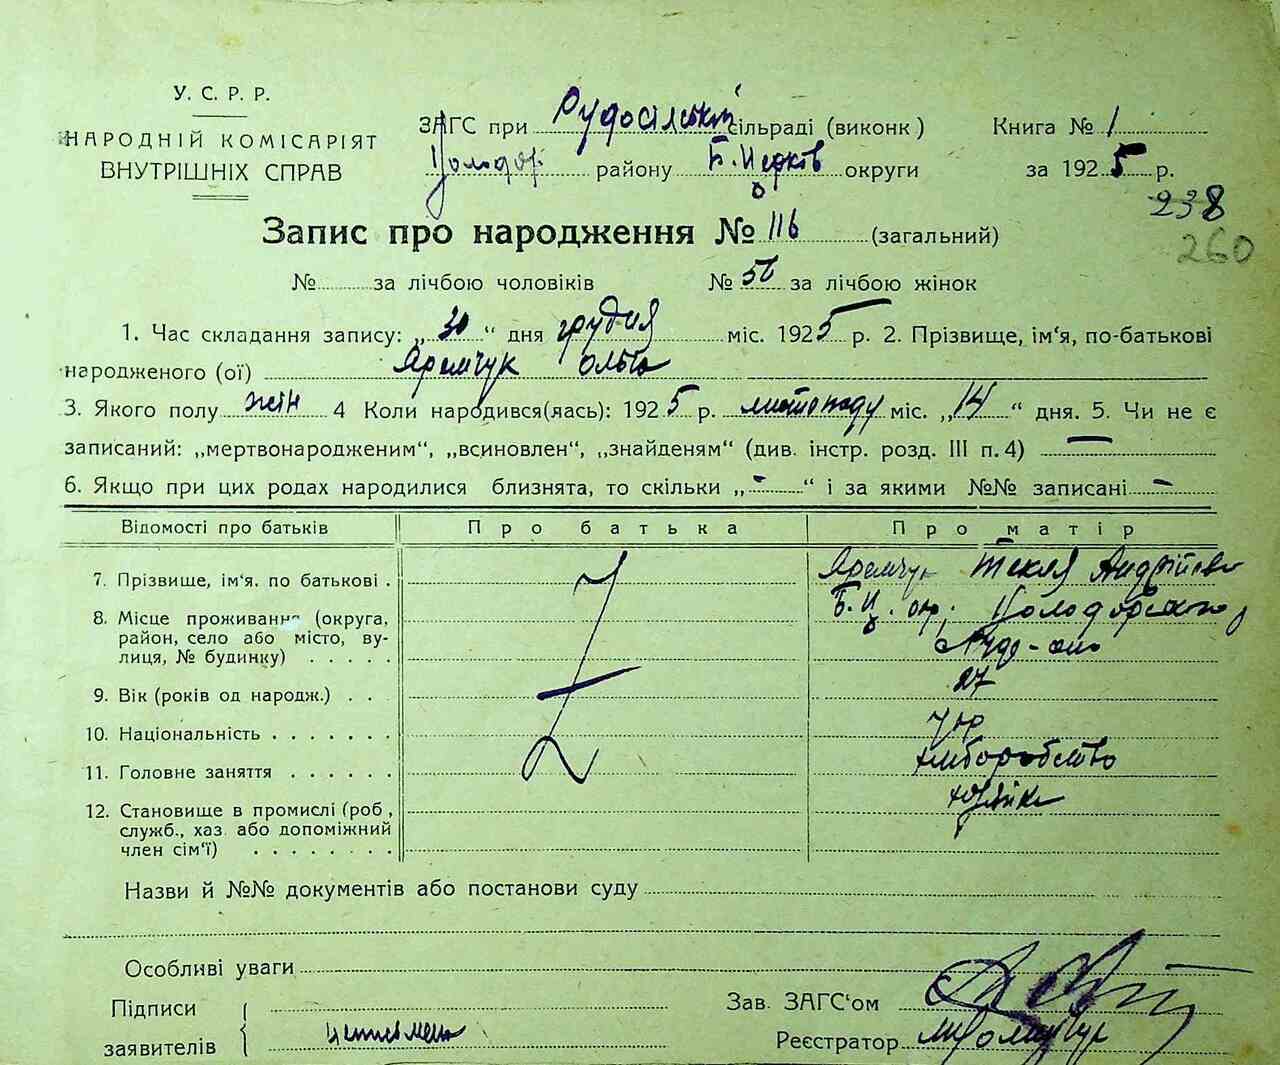 У. С. Р. Р.
НАРОДНІЙ КОМІСАРІЯТ
ВНУТРІШНІХ СПРАВ
ЗАГС при Рудосільській сільраді (виконк.)
Володар. району Б.-Церків округи
Книга № 1
за 1925 р.
238
260
Запис про народження № 116 (загальний)
№ за лічбою чоловіків № 56 за лічбою жінок
1. Час складання запису: „30“ дня грудня міс. 1925 р. 2. Прізвище, ім‘я, по-батькові
народженого (ої) Яремчук Ольга
3. Якого полу жін 4 Коли народився(лась): 1925 р. листопаду міс. „14“ дня. 5. Чи не є
записаний: „мертвонародженим“, „всиновлен“, „знайденям“ (див. інстр. розд. III п. 4) —
6. Якщо при цих родах народилися близнята, то скільки „-“ і за якими №№ записані -
Відомості про батьків Про батька Про матір
7. Прізвище, ім‘я. по батькові . Яремчук Текля Андрійов
8. Місце проживання (округа, Б.Ц. окр. Володарського
район, село або місто, ву-
лиця, № будинку) . . . . . Руде-село
9. Вік (років од народж.) . . 27
10. Національність . . . . . . . укр
11. Головне заняття . . . . . . хліборобство
12. Становище в промислі (роб., хазяйка
служб., хаз. або допоміжний
член сім‘ї) . . . . . . . .
Назви й №№ документів або постанови суду
Особливі уваги
Підписи
заявителів
неписьмен
Зав. ЗАГС‘ом
Реєстратор